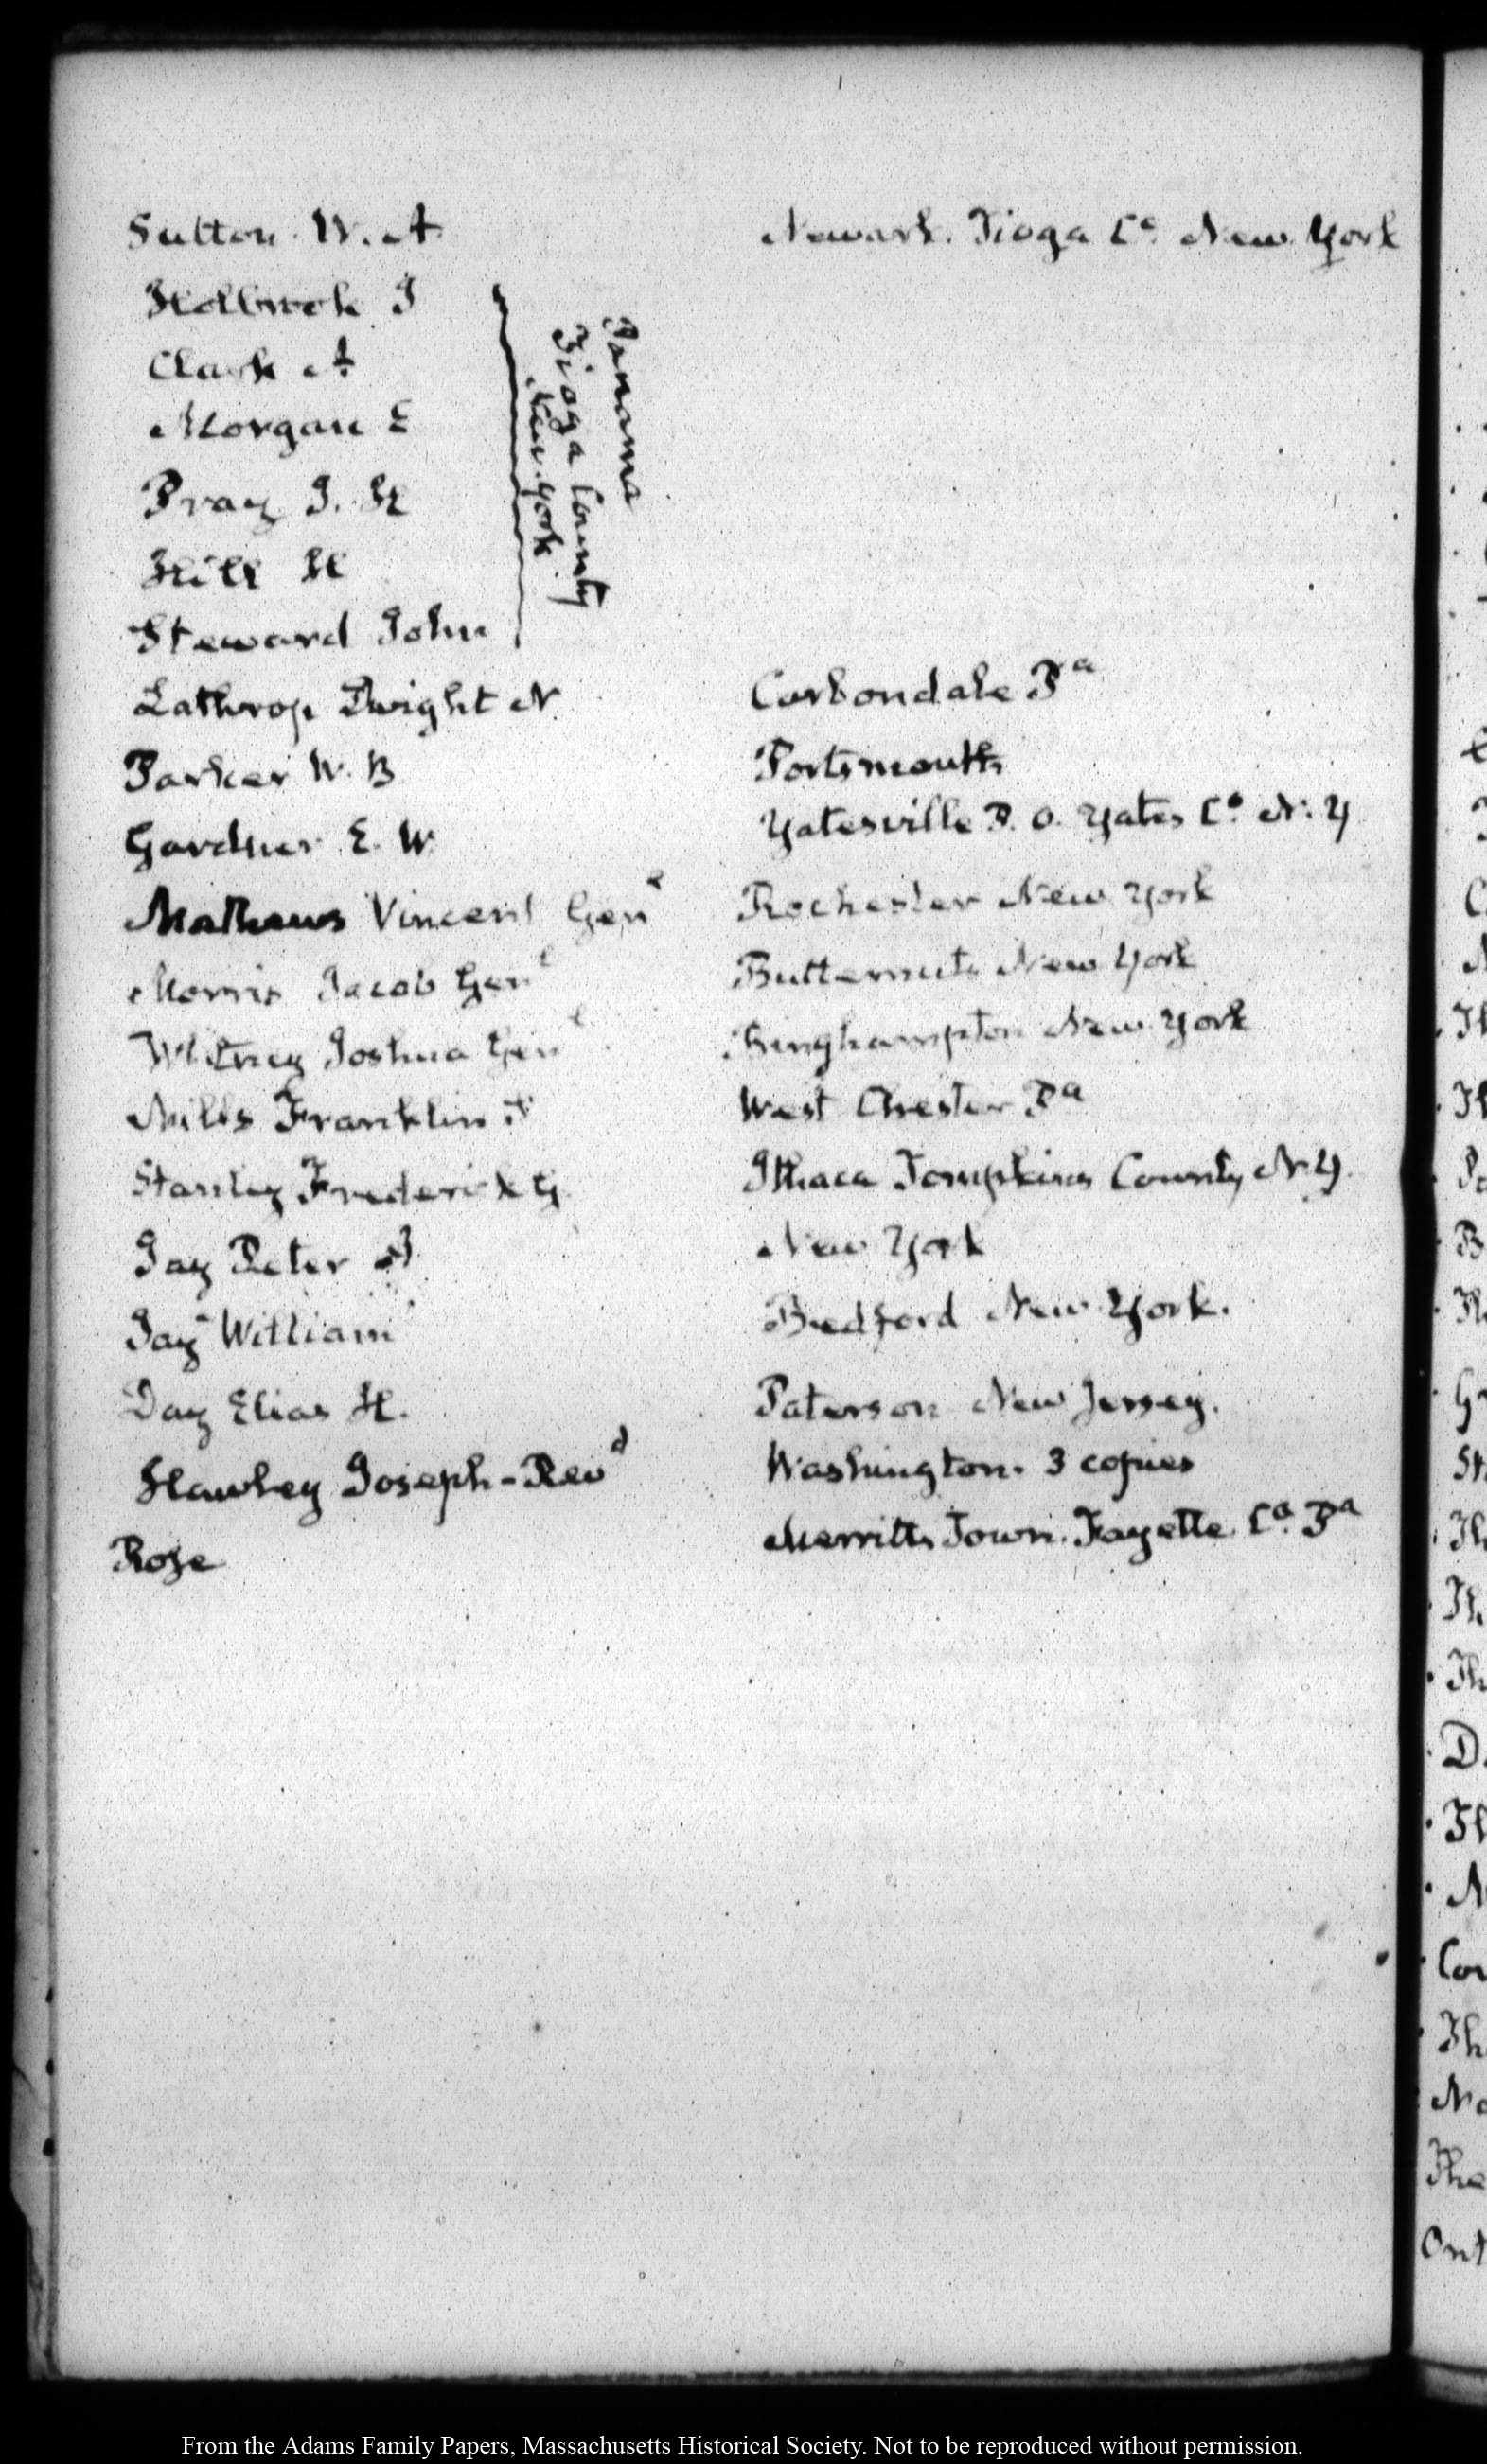 Sutton. W. A. Newark. Tioga Co. New York
Holbrook J
Clark A
Morgan E
Pray I. H
Hill H
Steward John
Panama
Tioga County
New York
Lathrop Dwight N. Carbondale Pa
Parker W. B Portsmouth
Gardner E. W. Yatesville P. O. Yates Co. N. Y
Mathews Vincent Genl Rochester New York
Morris Jacob Genl Butternuts New York
Whitney Joshua Genl Binghampton New York
Mills Franklin West Chester Pa
Stanley Frederick G. Ithaca Tompkins County N. Y.
Jay Peter New York
Jay William Bedford New York.
Day Elias H. Paterson New Jersey.
Hawley Joseph - Revd Washington. 3 copies
Rose Merritts Town. Fayette Co. Pa
From the Adams Family Papers, Massachusetts Historical Society. Not to be reproduced without permission.